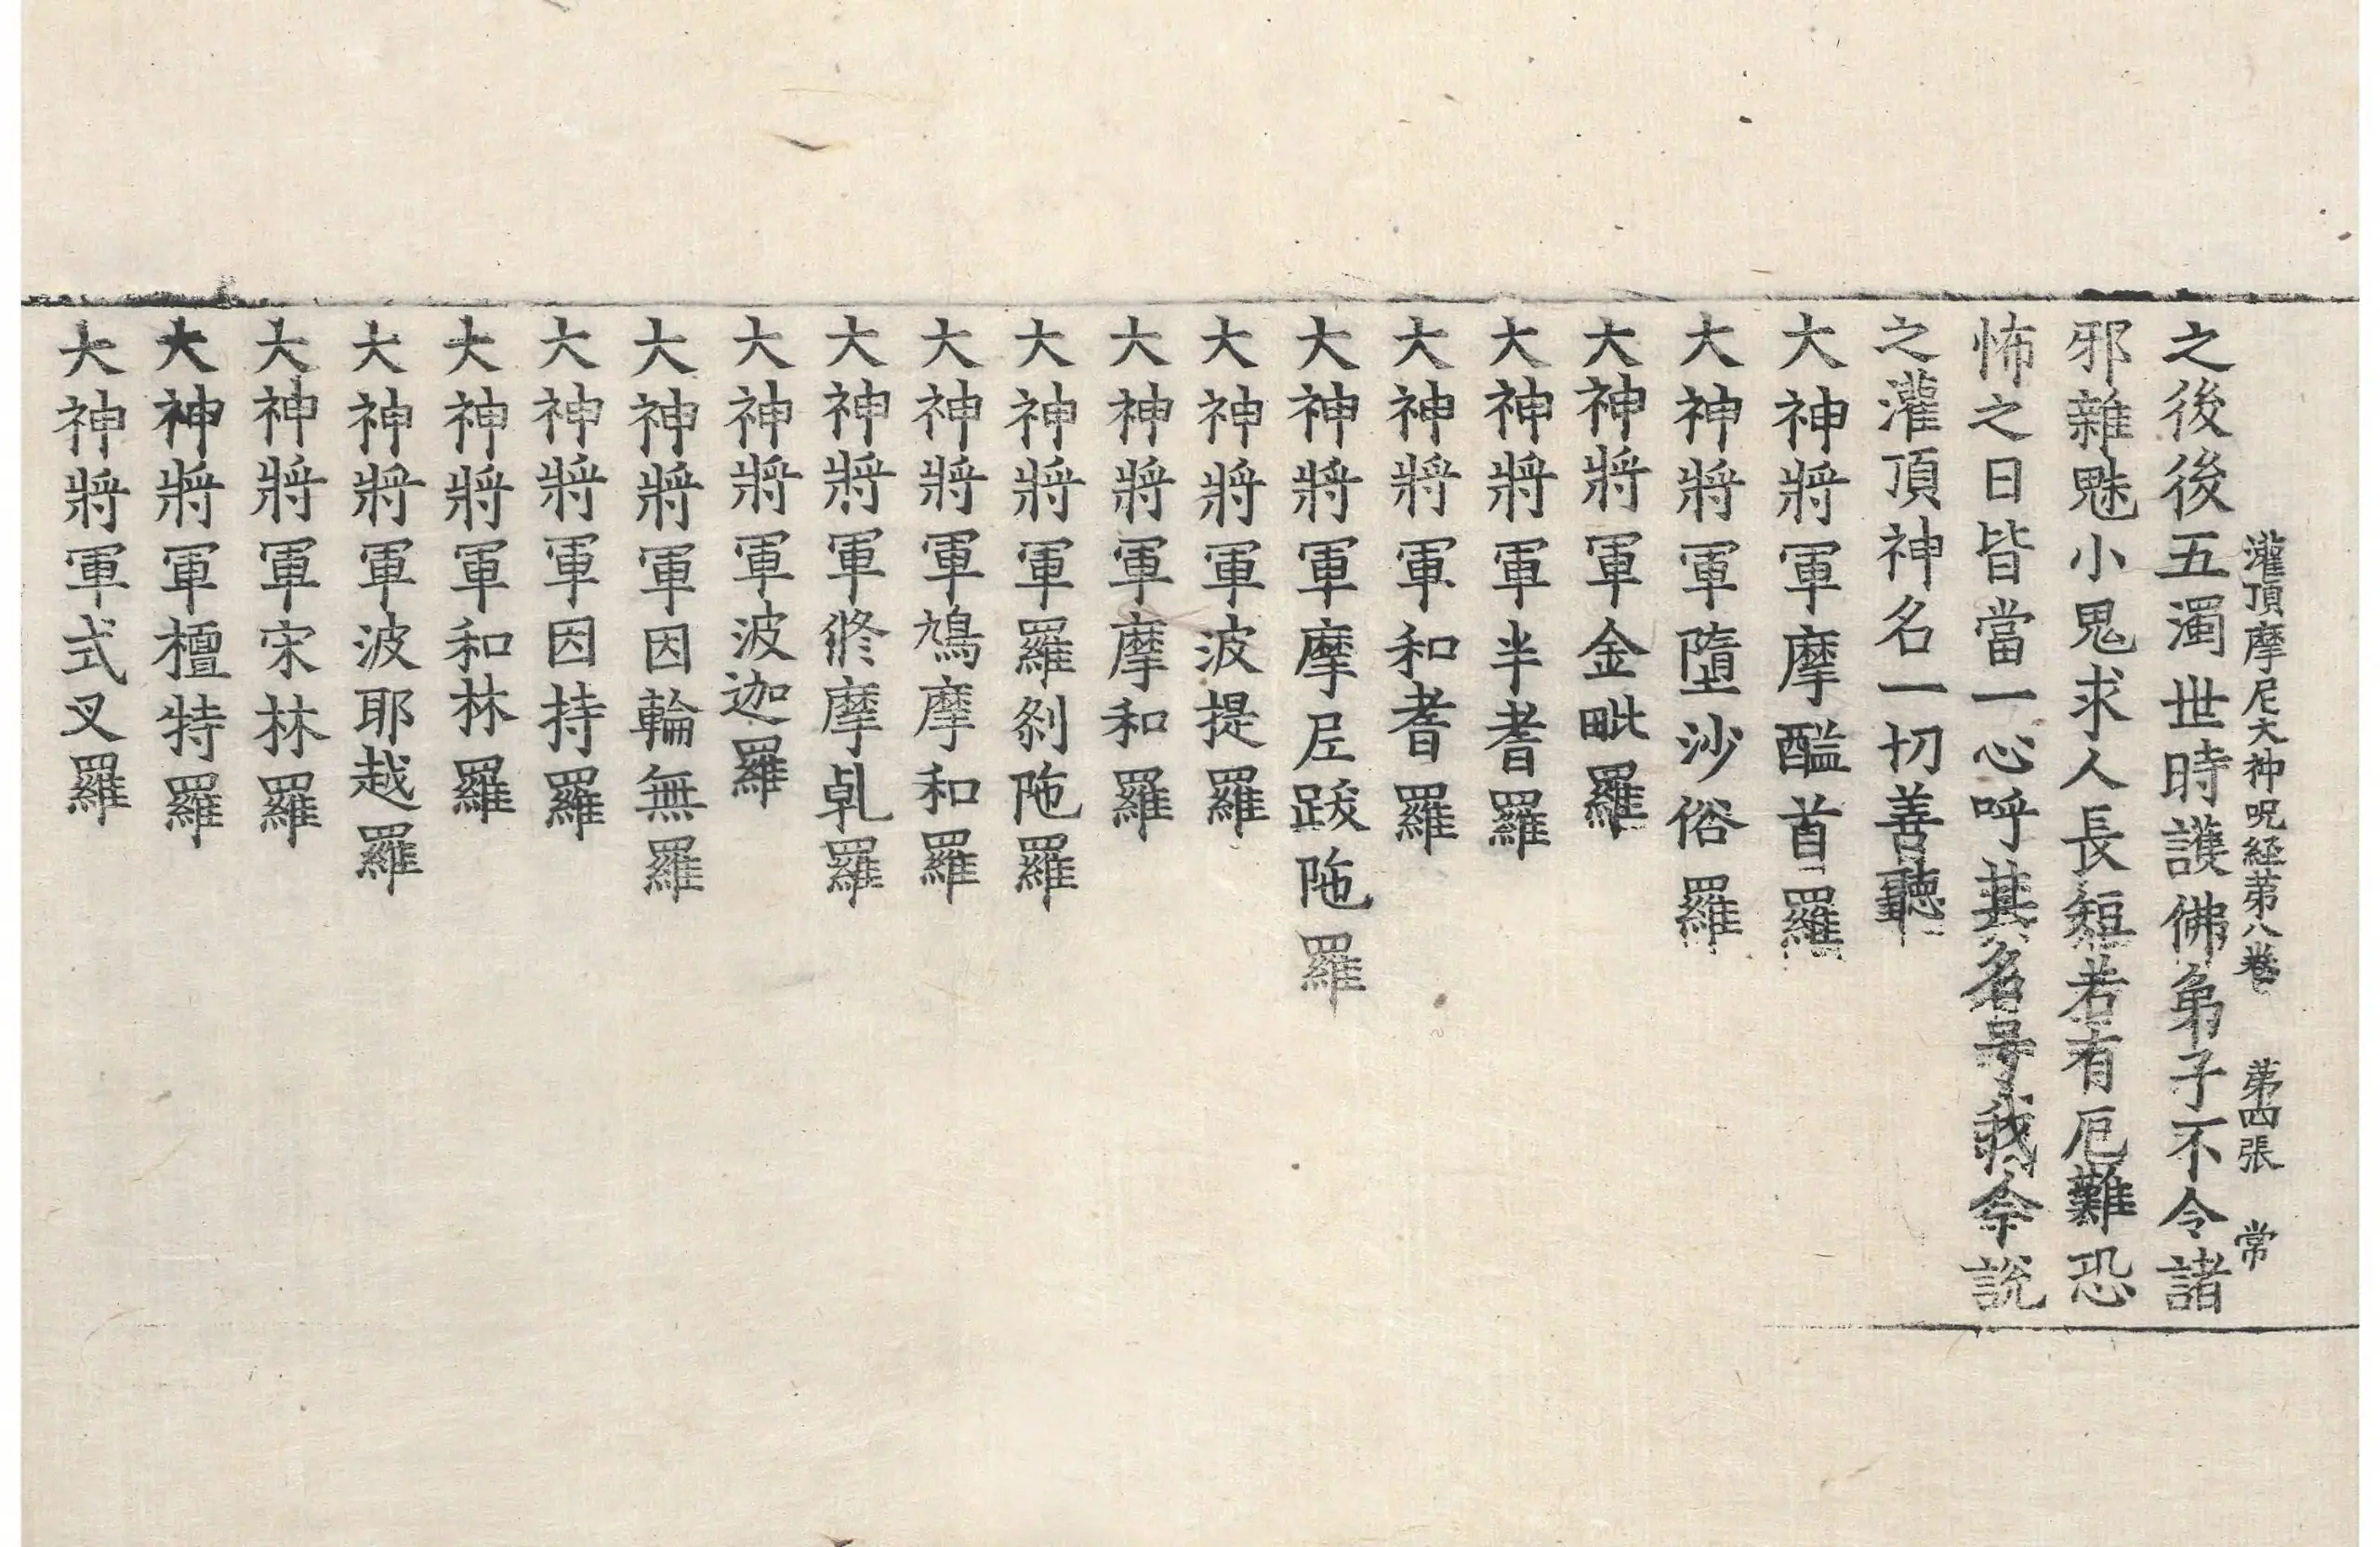 灌頂摩尼大神呪経苐八卷 苐四張 常
之後後五濁世時護佛弟子不令諸
邪雜魅小鬼求人長短若有厄難恐
怖之日皆當一心呼其名号我今說
之灌頂神名一切善聽
大神將軍摩醯首羅
大神將軍墮沙俗羅
大神將軍金毗羅
大神將軍半耆羅
大神將軍和耆羅
大神將軍摩尼跋陁羅
大神將軍波提羅
大神將軍摩和羅
大神將軍羅刹陁羅
大神將軍鳩摩和羅
大神將軍修摩乹羅
大神將軍波迦羅
大神將軍因輪無羅
大神將軍因持羅
大神將軍和林羅
大神將軍波耶越羅
大神將軍宋林羅
大神將軍檀特羅
大神將軍式叉羅